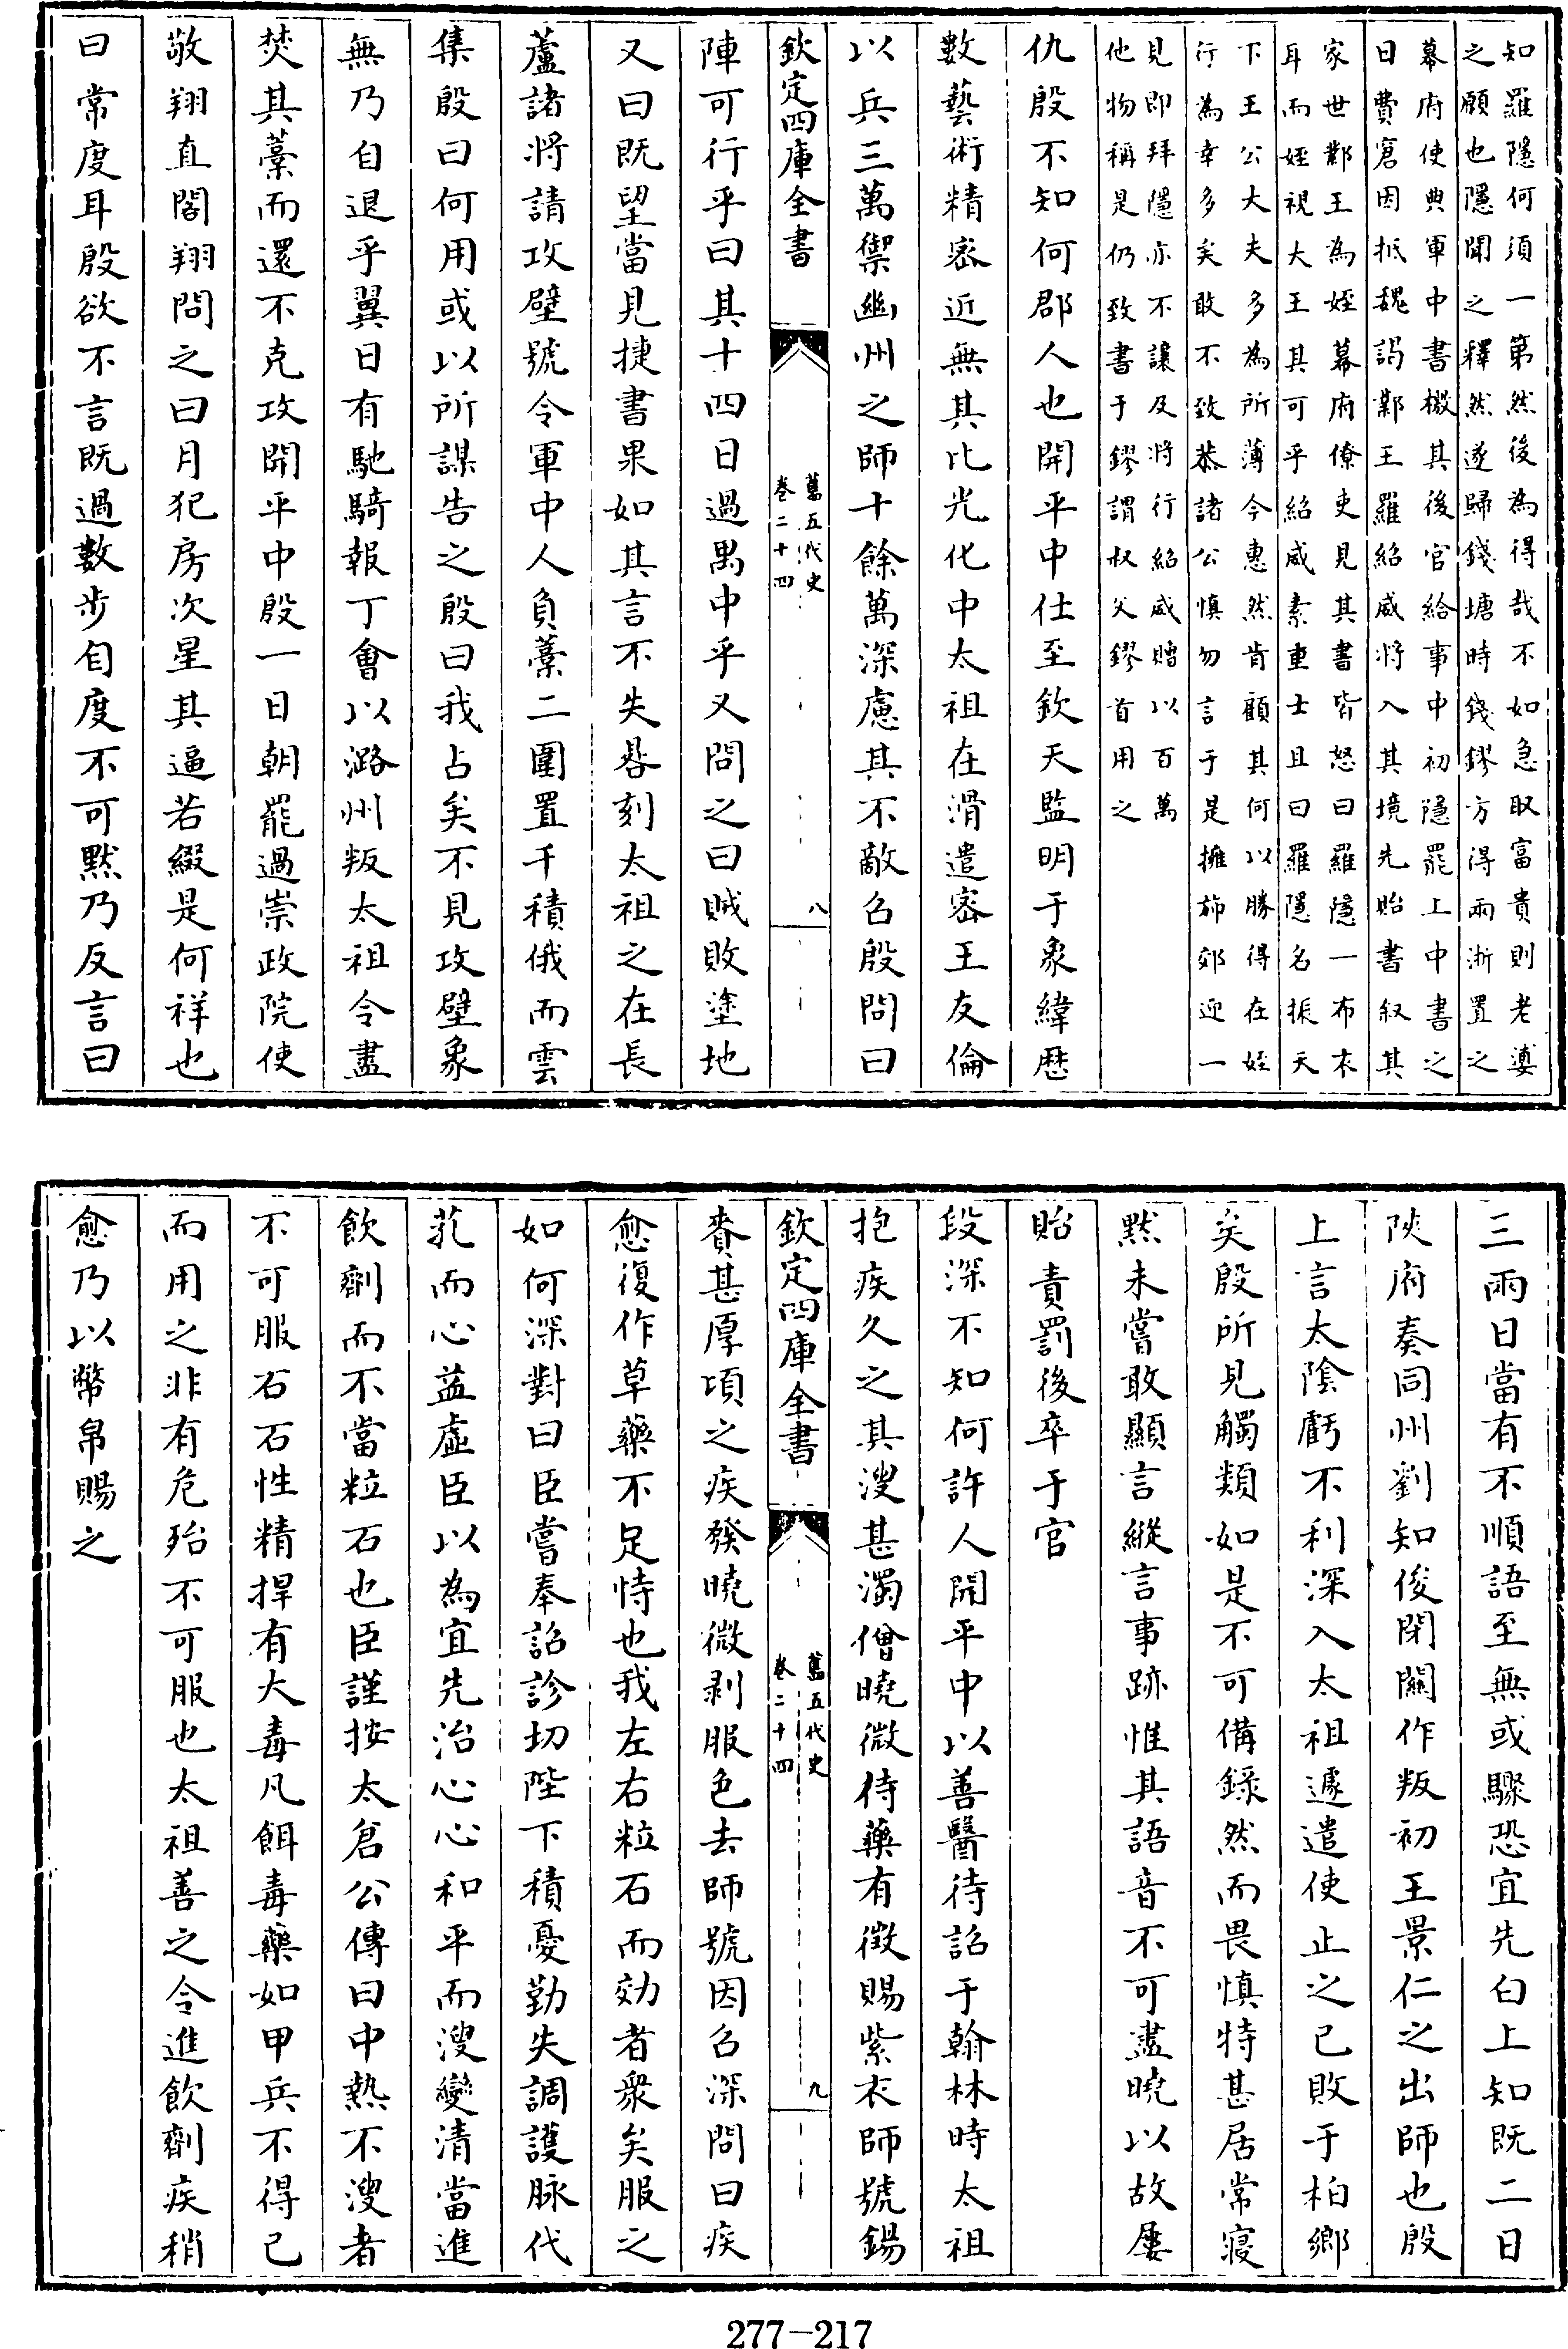 知羅隱何須一第然後為得哉不如急取富貴則老婆
之願也隱聞之釋然遂歸錢塘時錢鏐方得兩浙置之
幕府使典軍中書檄其後官給事中初隱罷上中書之
日費窘因抵魏謁鄴王羅紹威將入其境先貽書叙其
家世鄴王為姪幕府僚吏見其書皆怒曰羅隱一布衣
耳而姪視大王其可乎紹威素重士且曰羅隱名振天
下王公大夫多為所薄今惠然肯顧其何以勝得在姪
行為幸多矣敢不致恭諸公慎勿言于是擁斾郊迎一
見即拜隱亦不讓及將行紹威贈以百萬
他物稱是仍致書于鏐謂叔父鏐首用之
仇殷不知何郡人也開平中仕至欽天監明于象緯歷
數藝術精密近無其比光化中太祖在滑遣密王友倫
以兵三萬禦幽州之師十餘萬深慮其不敵召殷問曰
欽定四庫全書
舊五代史
卷二十四
八
陣可行乎曰其十四日過禺中乎又問之曰賊敗塗地
又曰既望當見捷書果如其言不失晷刻太祖之在長
蘆諸將請攻壁號令軍中人負藁二圍置千積俄而雲
集殷曰何用或以所謀告之殷曰我占矣不見攻壁象
無乃自退乎翼日有馳騎報丁會以潞州叛太祖令盡
焚其藁而還不克攻開平中殷一日朝罷過崇政院使
敬翔直閣翔問之曰月犯房次星其逼若綴是何祥也
曰常度耳殷欲不言既過數步自度不可默乃反言曰
三兩日當有不順語至無或驟恐宜先白上知既二日
陝府奏同州劉知俊閉關作叛初王景仁之出師也殷
上言太陰虧不利深入太祖遽遣使止之已敗于柏鄉
矣殷所見觸類如是不可備錄然而畏慎特甚居常寢
默未嘗敢顯言縱言事跡惟其語音不可盡曉以故屢
貽責罰後卒于官
段深不知何許人開平中以善醫待詔于翰林時太祖
抱疾久之其溲甚濁僧曉微待藥有徵賜紫衣師號錫
欽定四庫全書
舊五代史
卷二十四
九
賚甚厚項之疾發曉微剥服色去師號因召深問曰疾
愈復作草藥不足恃也我左右粒石而効者衆矣服之
如何深對曰臣嘗奉詔診切陛下積憂勤失調護脉代
芤而心益虛臣以為宜先治心心和平而溲變清當進
飲劑而不當粒石也臣謹按太倉公傳曰中熱不溲者
不可服石石性精捍有大毒凡餌毒藥如甲兵不得已
而用之非有危殆不可服也太祖善之令進飲劑疾稍
愈乃以幣帛賜之
277-217